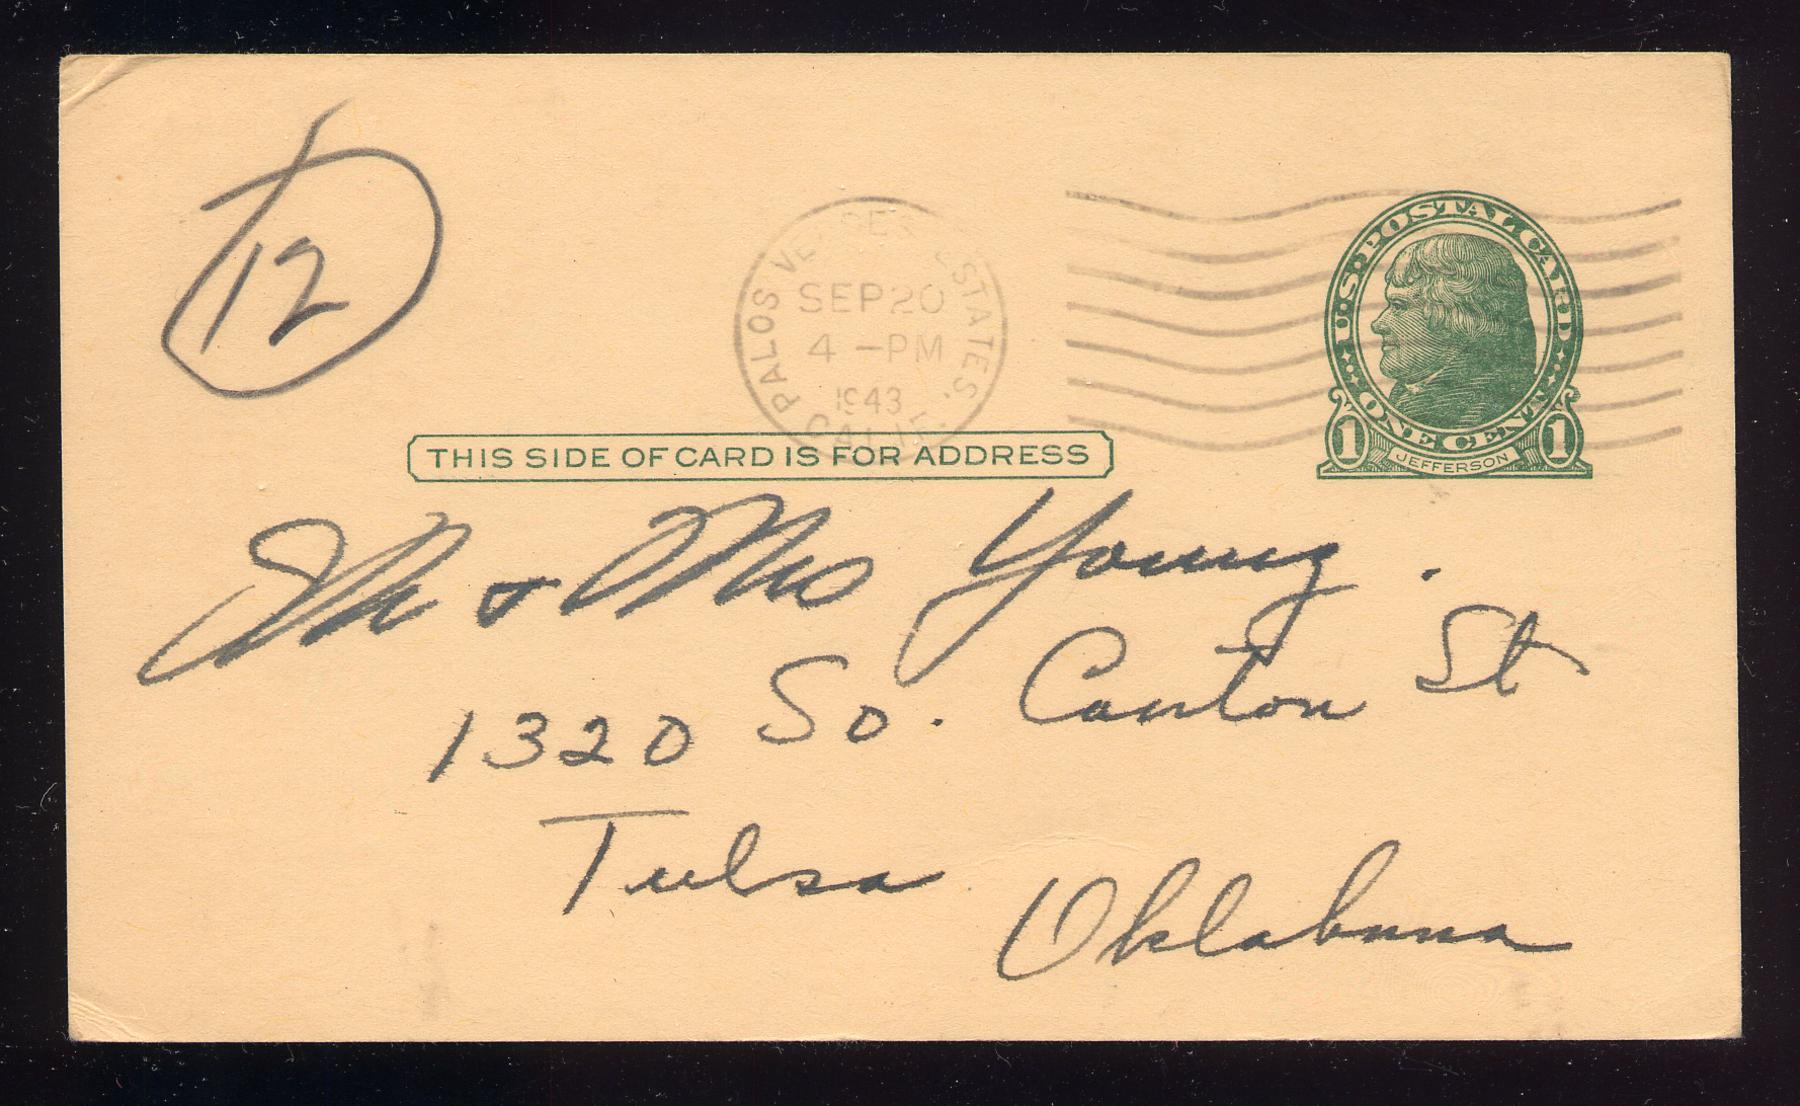 12
PALOS VERDES ESTATES.
SEP 20
4 - PM
1943
CALIF.
U·S·POSTAL CARD
ONE CENT
1 JEFFERSON 1
THIS SIDE OF CARD IS FOR ADDRESS
Mr & Mrs Young.
1320 So. Canton St
Tulsa
Oklahoma